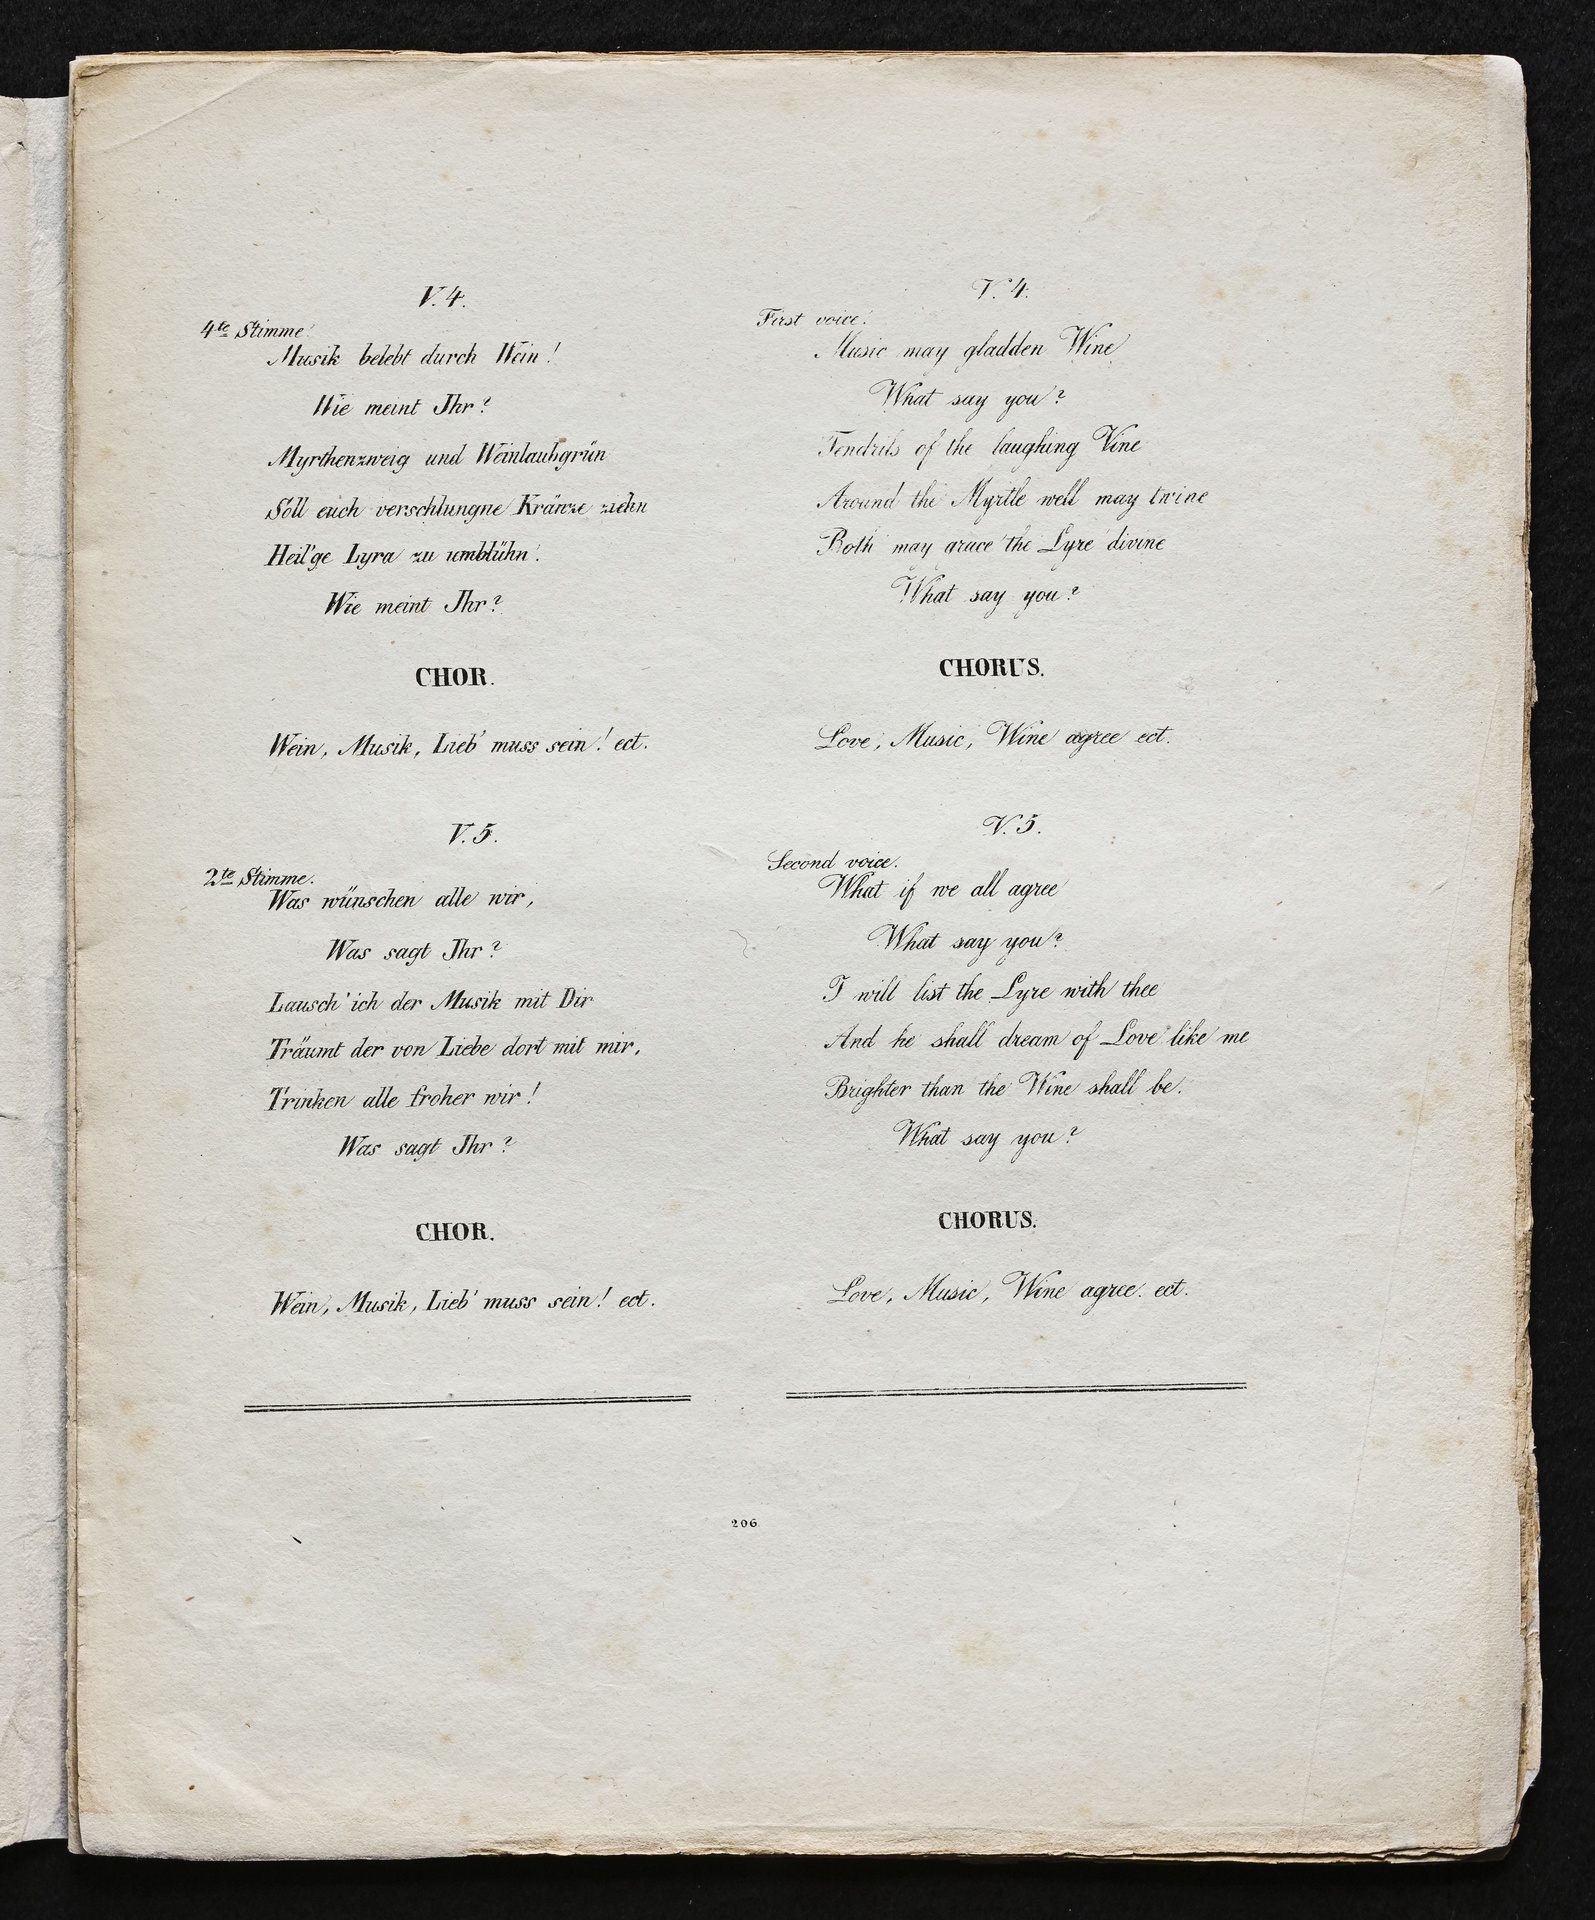 V. 4.
4te Stimme.
Musik belebt durch Wein!
Wie meint Jhr?
Myrthenzweig und Weinlaubgrün
Soll euch verschlungne Kränze ziehn
Heil'ge Lyra zu umblühn.
Wie meint Jhr?
CHOR.
Wein, Musik, Lieb' muss sein! ect.
V. 5.
2te Stimme.
Was wünschen alle wir,
Was sagt Jhr?
Lausch' ich der Musik mit Dir
Träumt der von Liebe dort mit mir,
Trinken alle froher wir!
Was sagt Jhr?
CHOR.
Wein, Musik, Lieb' muss sein! ect.
V. 4.
First voice.
Music may gladden Wine
What say you?
Tendrils of the laughing Vine
Around the Myrtle well may twine
Both may grace the Lyre divine
What say you?
CHORUS.
Love, Music, Wine agree ect.
V. 5.
Second voice.
What if we all agree
What say you?
I will list the Lyre with thee
And he shall dream of Love like me
Brighter than the Wine shall be.
What say you?
CHORUS.
Love, Music, Wine agree. ect.
206